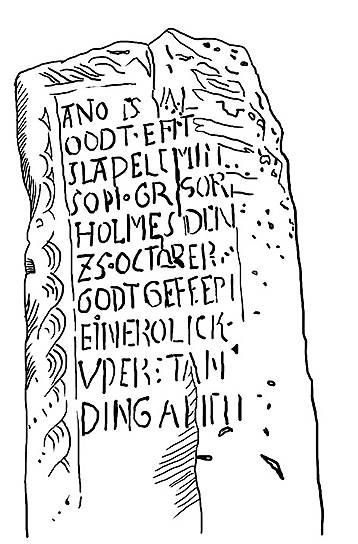 ANO IS AL
OODT·EFT
SLAPELT MIN
SON·GR SOR
HOLMES DEN
25·OCTOBER
GODT GEFEEPI
EINEROLICK·
VPERTAN
DING A